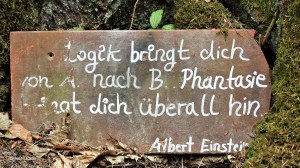 Logik bringt dich
von A. nach B. Phantasie
hat dich überall hin.
Albert Einstein